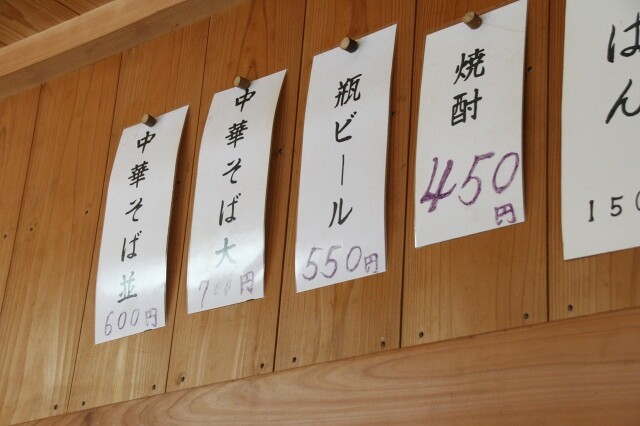 中華そば並
600円
中華そば大
700円
瓶ビール
550円
焼酎
450円
はん
150